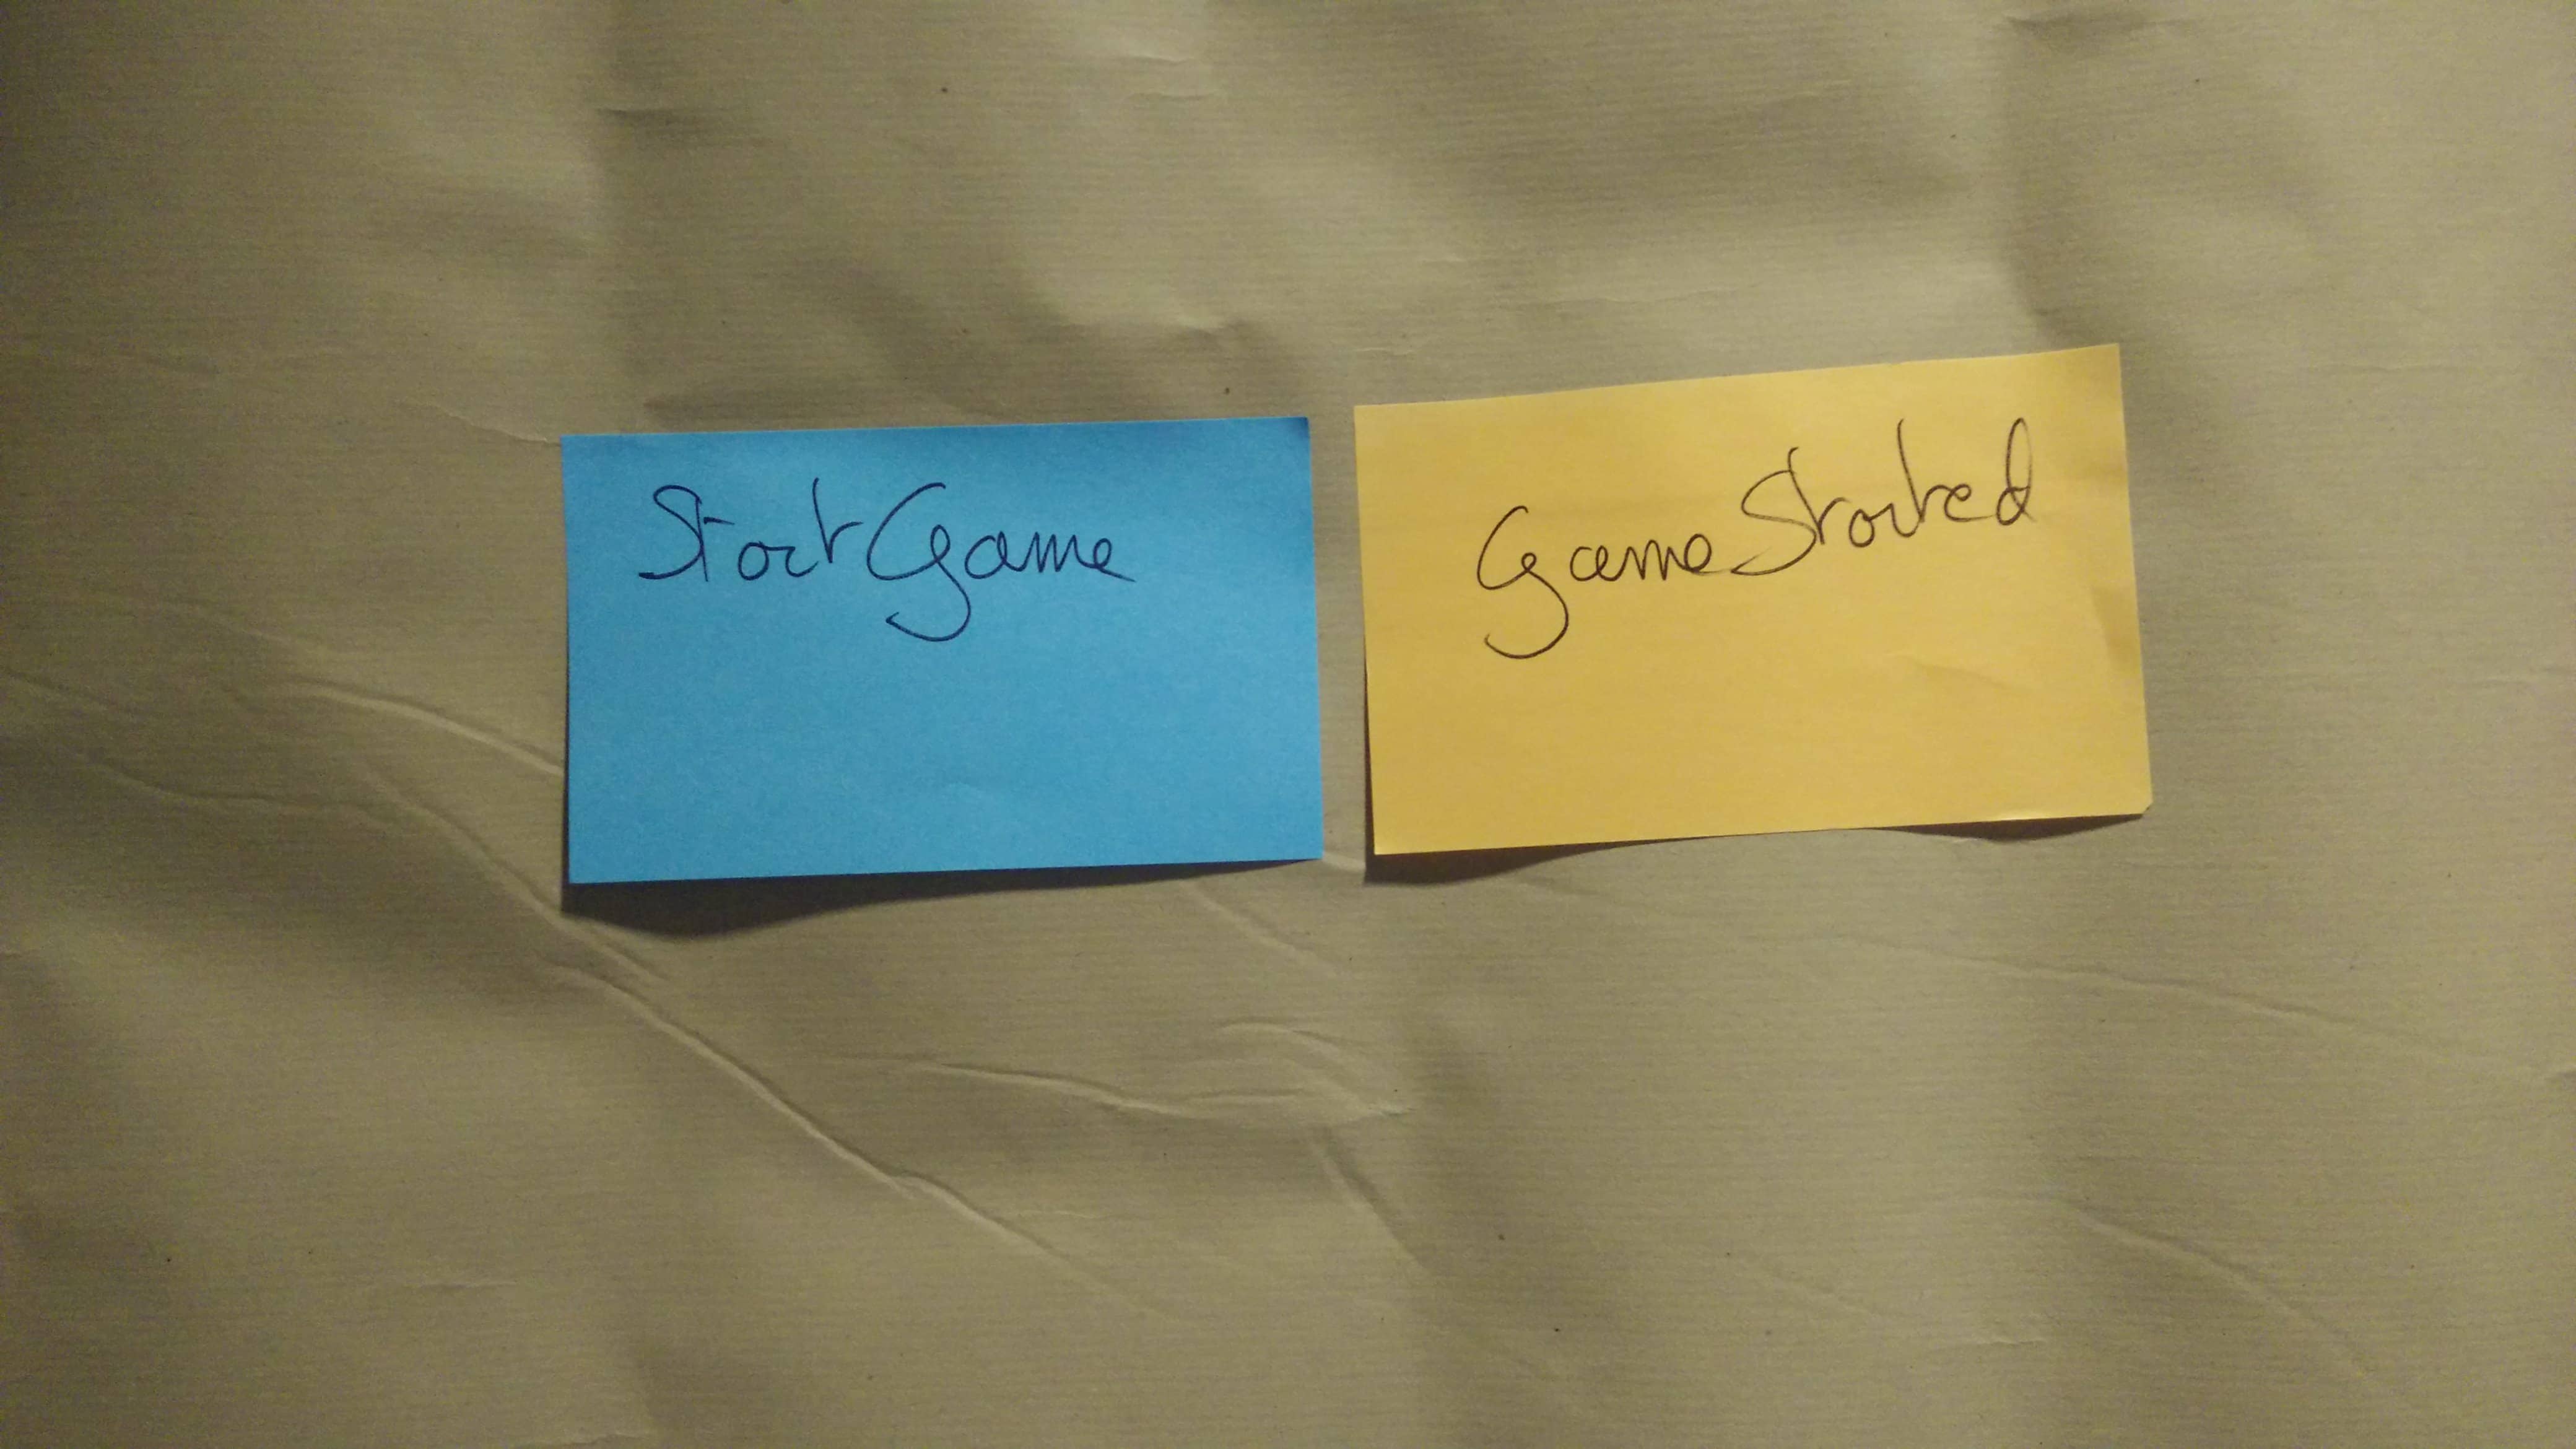 StartGame
GameStarted